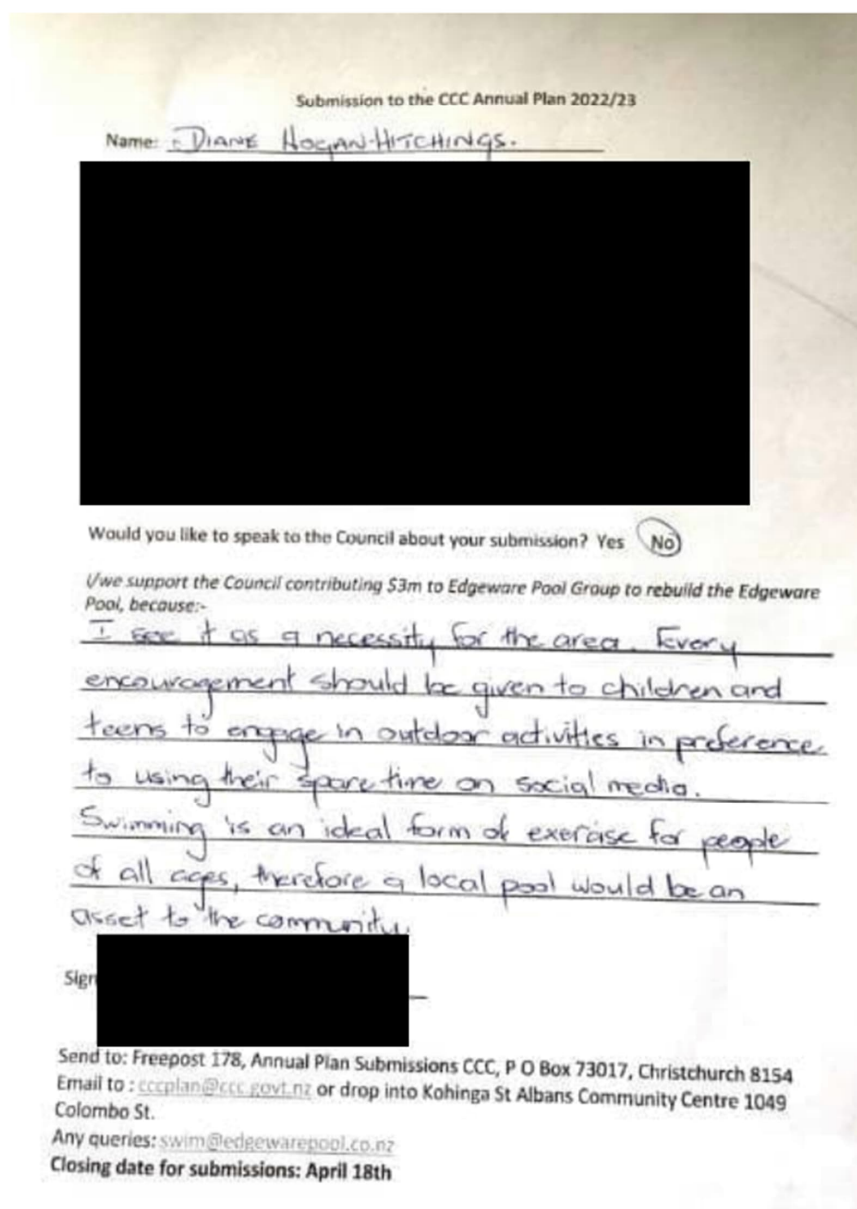 Submission to the CCC Annual Plan 2022/23
Name: DIANE HOGAN-HITCHINGS.
Would you like to speak to the Council about your submission? Yes No
I/we support the Council contributing $3m to Edgeware Pool Group to rebuild the Edgeware
Pool, because:-
I see it as a necessity for the area. Every
encouragement should be given to children and
teens to engage in outdoor activities in preference
to using their spare time on social media.
Swimming is an ideal form of exercise for people
of all ages, therefore a local pool would be an
asset to the community.
Sign
Send to: Freepost 178, Annual Plan Submissions CCC, P O Box 73017, Christchurch 8154
Email to : cccplan@ccc.govt.nz or drop into Kohinga St Albans Community Centre 1049
Colombo St.
Any queries: swim@edgewarepool.co.nz
Closing date for submissions: April 18th